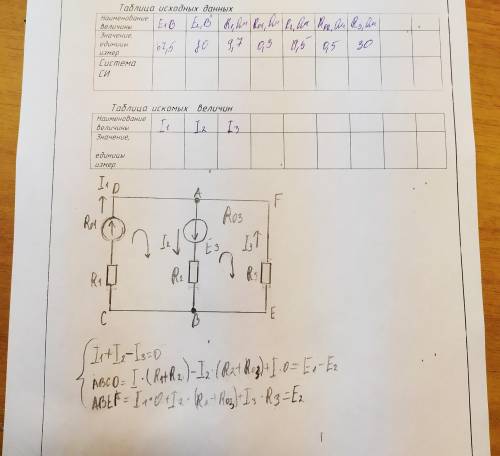 Таблица исходных данных
Наименование величины E1,В E2,В R1,Ом R01,Ом R2,Ом R02,Ом R3,Ом
Значение, единицы измер. 80 9,7 0,3 0,5 30
Система СИ
Таблица искомых величин
Наименование величины I1 I2 I3
Значение,
единицы измер.
I1 D A F
R01 R03
I2 E3 I3
R1 R2 R3
C B E
I1+I2-I3=0
ABCD=I·(R1+R2)-I2·(R2+R03)+I·0=E1-E2
ABEF=I1·0+I2·(R2+R03)+I3·R3=E2